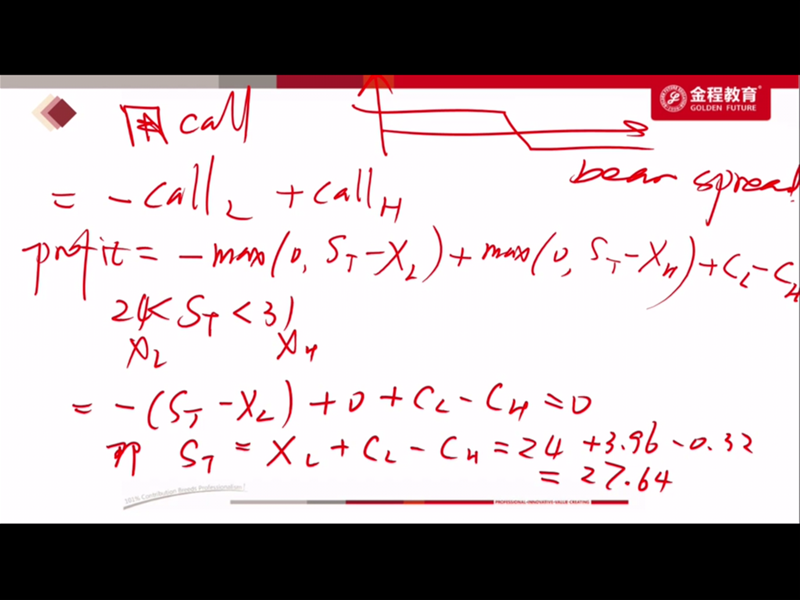 金程教育®
GOLDEN FUTURE
用 call
bear spread
= -call_L + call_H
profit = -max(0, S_T - X_L) + max(0, S_T - X_H) + C_L - C_H
24 < S_T < 31
X_L X_H
= -(S_T - X_L) + 0 + C_L - C_H = 0
即 S_T = X_L + C_L - C_H = 24 + 3.96 - 0.32
= 27.64
101% Contribution Breeds Professionalism !